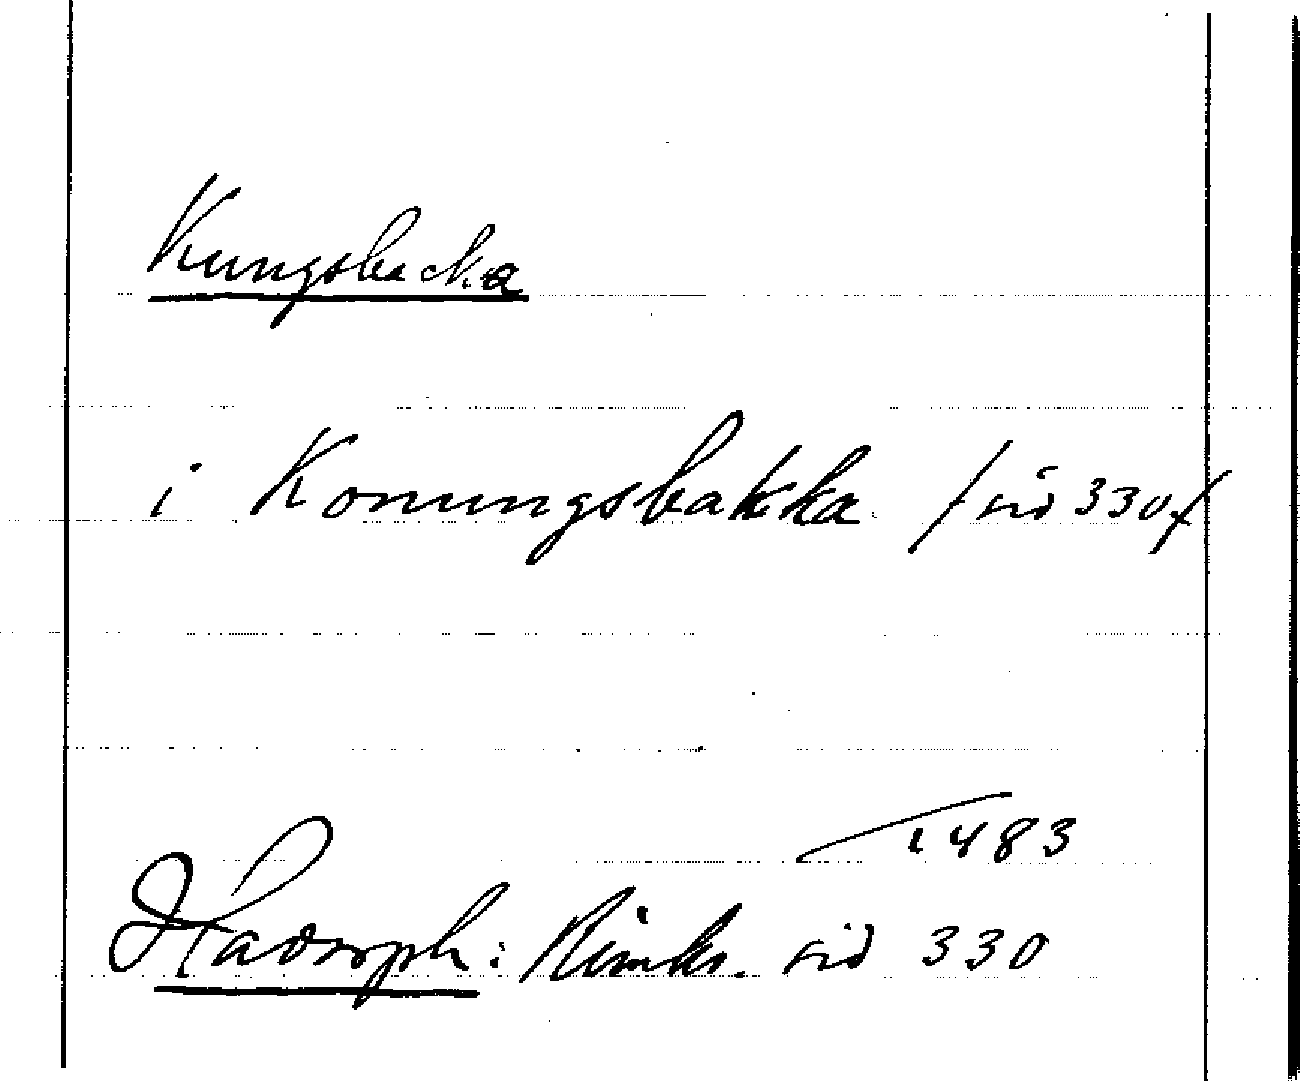 Kungsbacka
i Konungsbakka /sid 330/
1483
Hadorph: Rimkr. sid 330